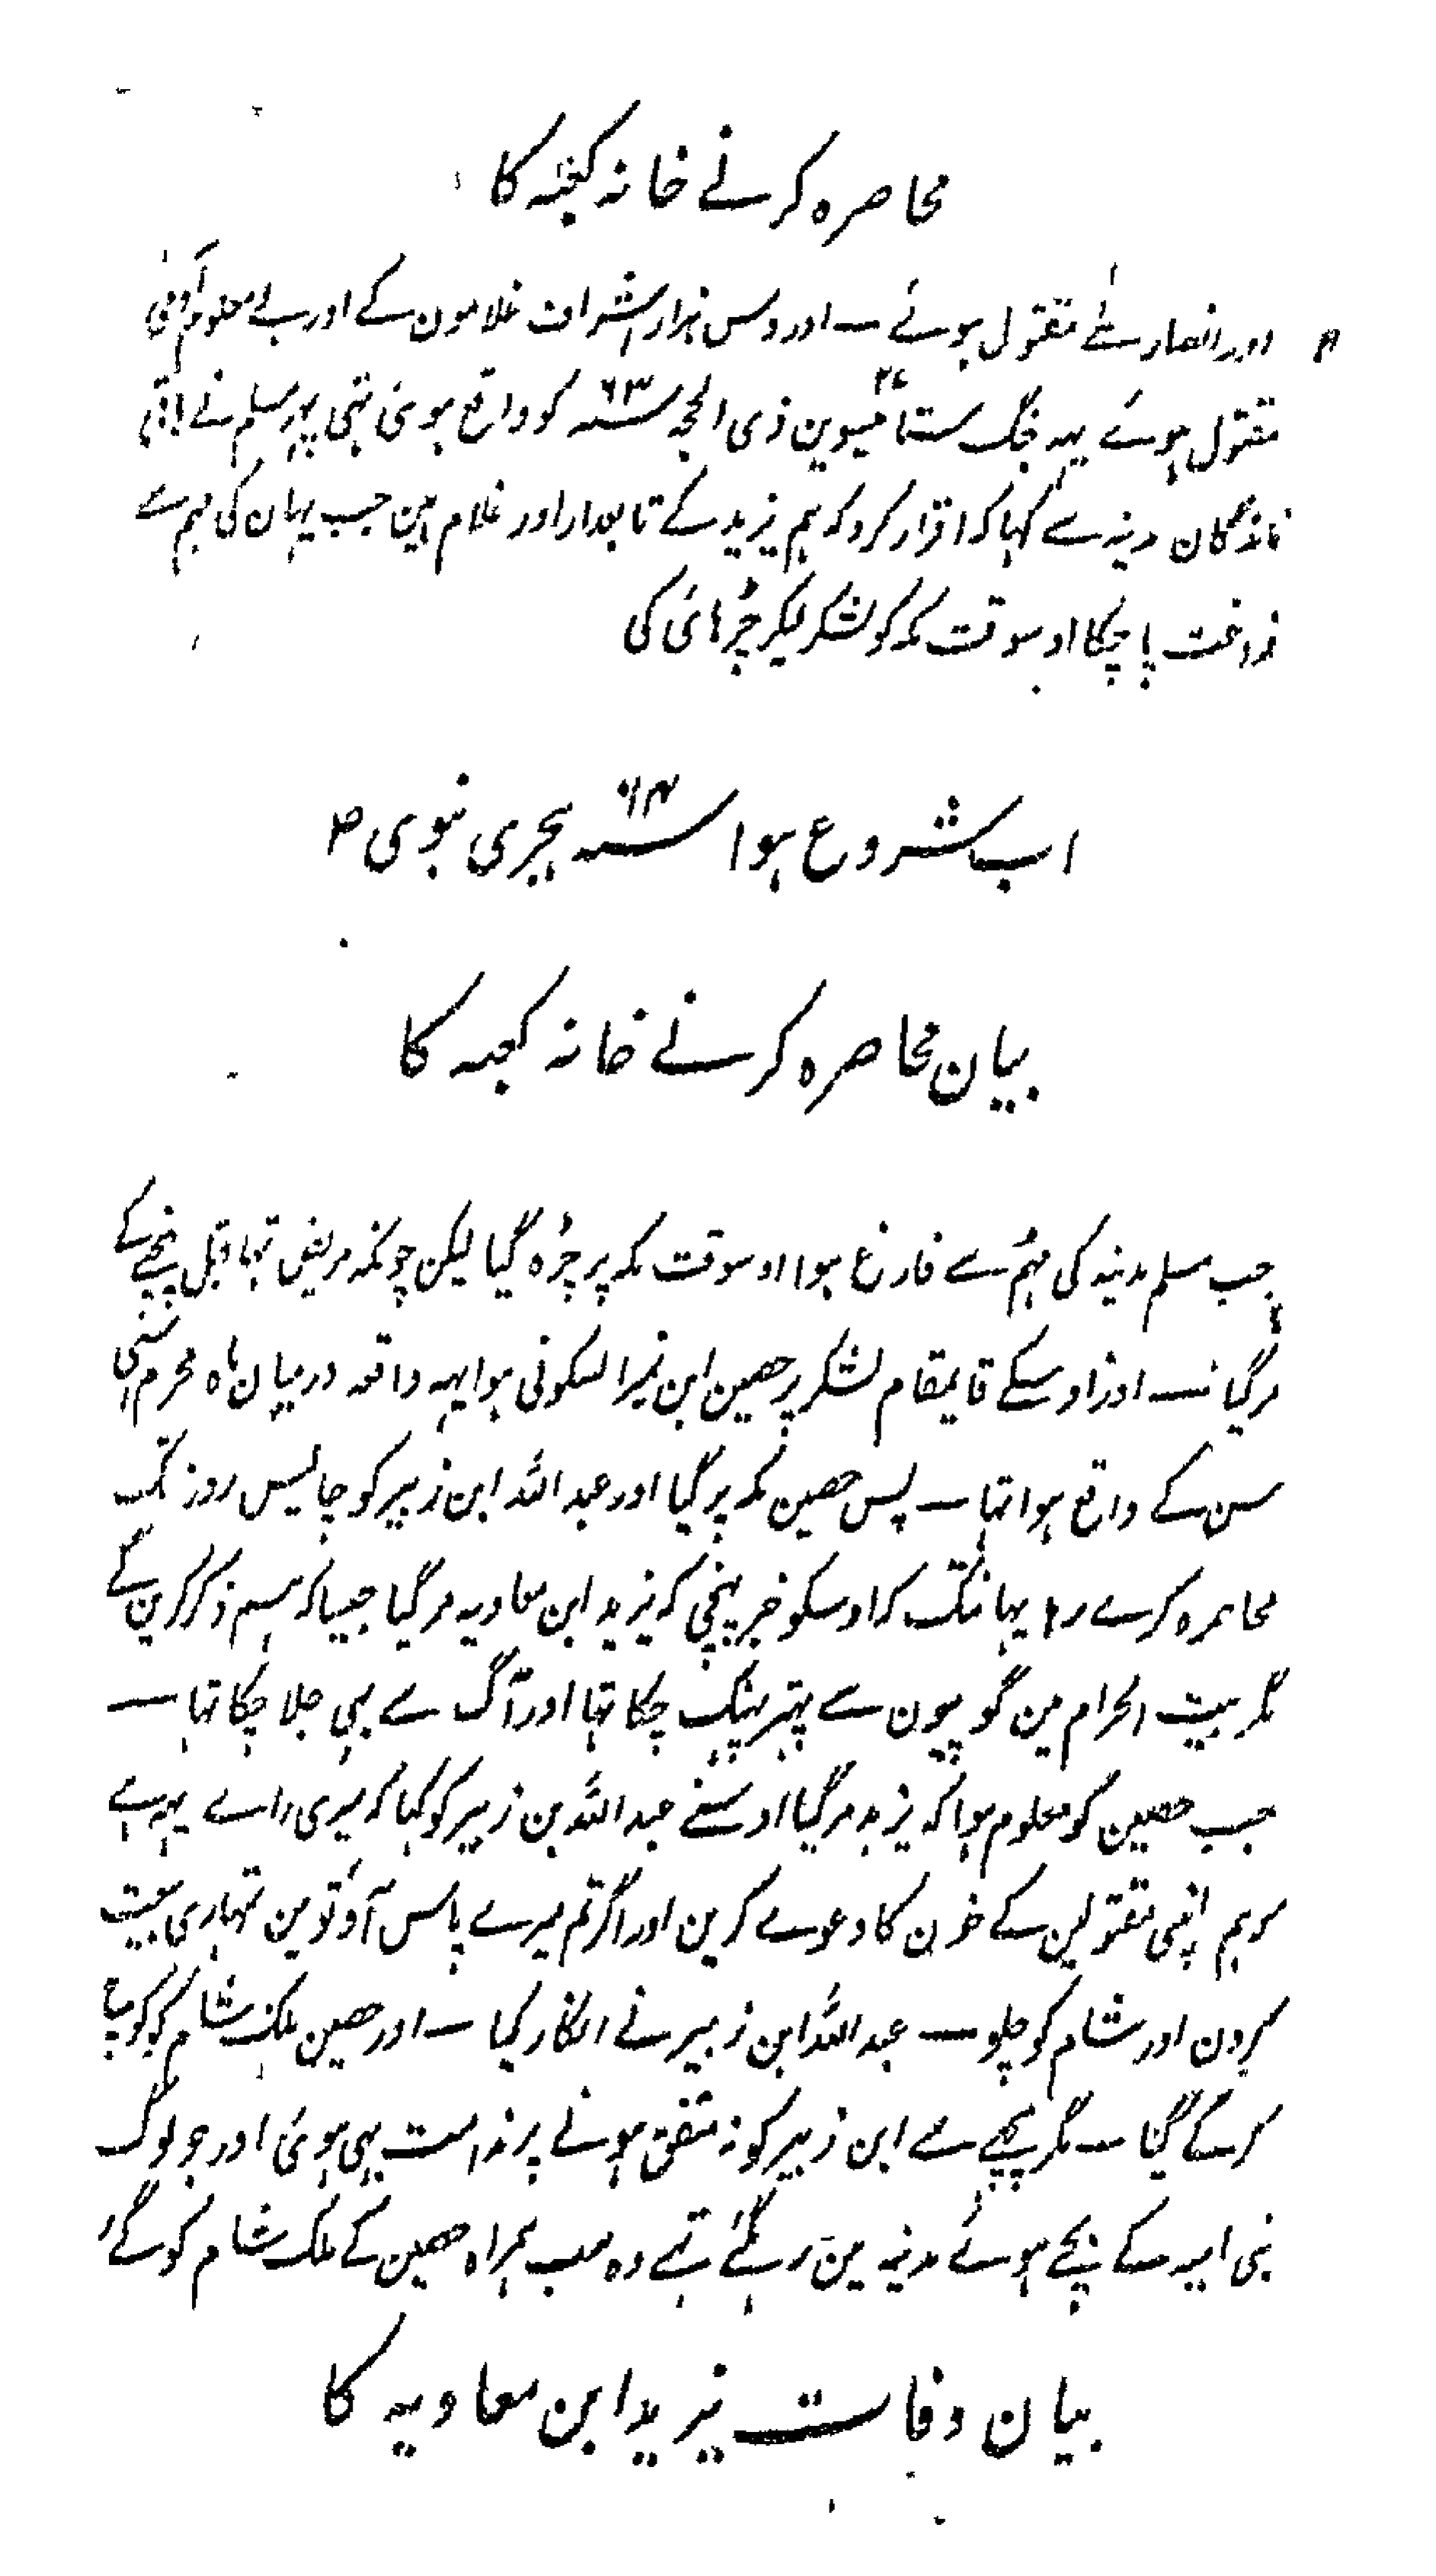 محاصره کرنے خانہ کعبہ کا
اور انصار سے مقتول ہوئے — اور دس ہزار اشراف غلامون کے اور بے معلوم آدمی
مقتول ہوئے یہہ جنگ ستائیسوین ۲۷ ذی الحجہ سنہ ۶۳ کو واقع ہوئی تہی پہر مسلم نے باقی
ماندگان مدینہ سے کہا کہ اقرار کرو کہ ہم یزید کے تابعدار اور غلام ہین جب یہان کی مہم سے
فراغت پا چکا اوسوقت مکہ کو لشکر لیکر چڑہائی کی
اب شروع ہوا سنہ ۶۴ ہجری نبوی ص
بیان محاصرہ کرنے خانہ کعبہ کا
جب مسلم مدینہ کی مہم سے فارغ ہوا اوسوقت مکہ پر چڑہ گیا لیکن چونکہ مریض تہا قبل پہنچنے کے
مرگیا — اور اوسکے قایمقام لشکر پر حصین ابن نمیر السکونی ہوا یہہ واقعہ درمیان ماہ محرم اسی
سن کے واقع ہوا تہا — پس حصین مکہ پر گیا اور عبد اللہ ابن زبیر کو چالیس روز تک
محاصرہ کرے رہا یہانتک کہ اوسکو خبر پہنچی کہ یزید ابن معاویہ مرگیا جیسا کہ ہم ذکر کرین گے
مگر بیت الحرام مین گوپیون سے پتہر پہینک چکا تہا اور آگ سے بہی جلا چکا تہا —
جب حصین کو معلوم ہوا کہ یزید مرگیا اوسنے عبد اللہ بن زبیر کو کہا کہ میری راے یہہ ہے
کہ ہم اپنی مقتولین کے خون کا دعوے کرین اور اگر تم میرے پاس آؤ تو مین تمہاری بیعت
کرون اور شام کو چلو — عبد اللہ ابن زبیر نے انکار کیا — اور حصین ملک شام کو کوچ
کر کے گیا — مگر پیچہے سے ابن زبیر کو نہ متفق ہونے پر ندامت بہی ہوئی اور جو لوگ
بنی امیہ کے بچے ہوئے مدینہ مین رہگئے تہے وہ سب ہمراہ حصین کے ملک شام کو گئے
بیان وفات یزید ابن معاویہ کا